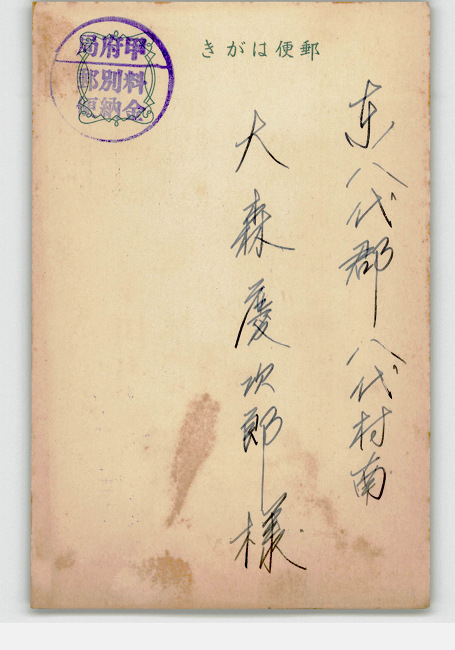 郵便はがき
東八代郡八代村南
大森慶次郎様
甲府局
料金別納郵便